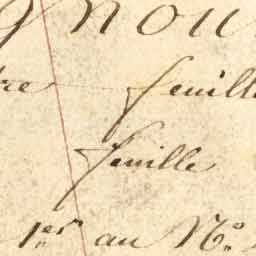 nou
re feuill
feuille
1.er au N.o